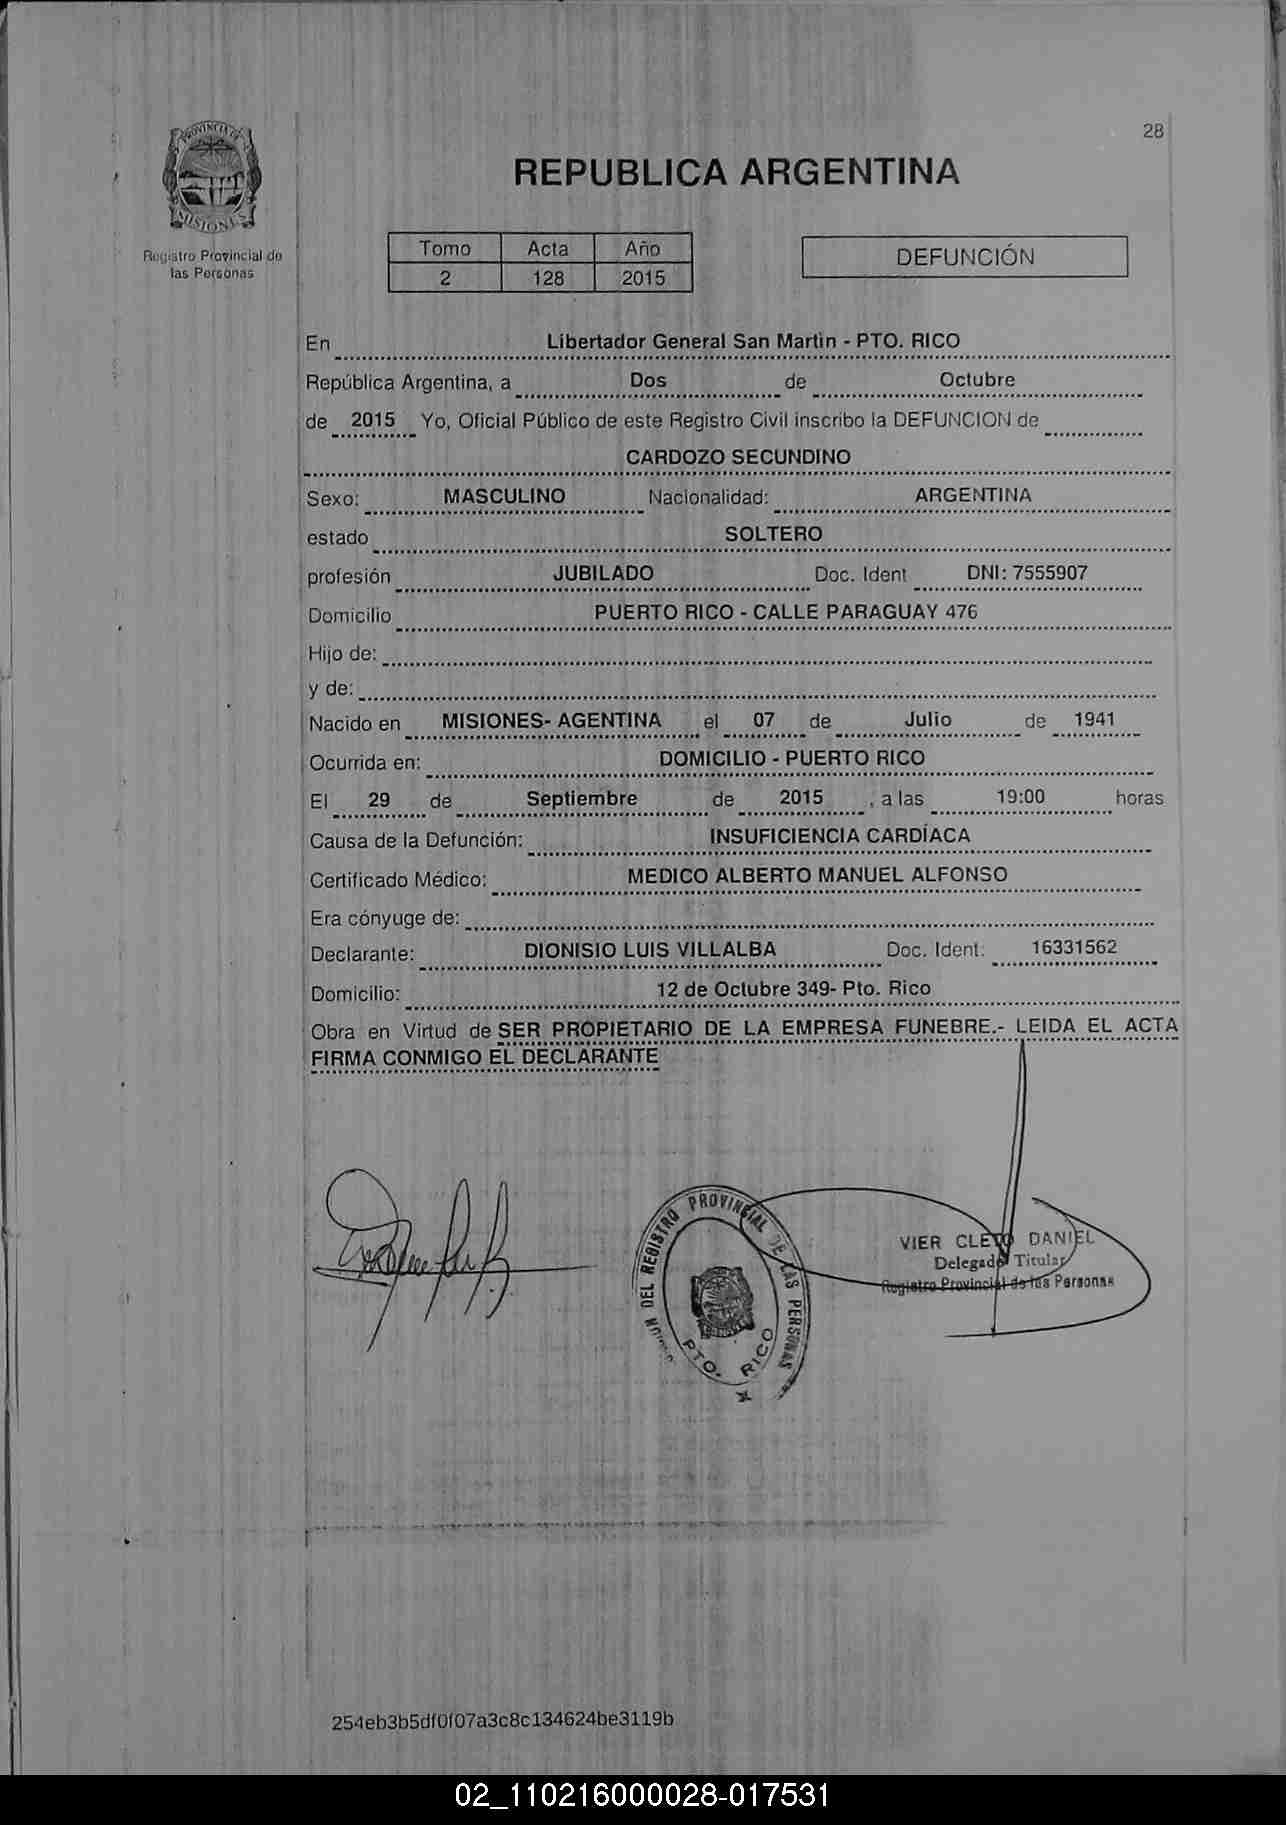 28
PROVINCIA DE
MISIONES
Registro Provincial de
las Personas
REPUBLICA ARGENTINA
Tomo Acta Año
2 128 2015
DEFUNCIÓN
En Libertador General San Martin - PTO. RICO
República Argentina, a Dos de Octubre
de 2015 Yo, Oficial Público de este Registro Civil inscribo la DEFUNCION de
CARDOZO SECUNDINO
Sexo: MASCULINO Nacionalidad: ARGENTINA
estado SOLTERO
profesión JUBILADO Doc. Ident DNI: 7555907
Domicilio PUERTO RICO - CALLE PARAGUAY 476
Hijo de:
y de:
Nacido en MISIONES- AGENTINA el 07 de Julio de 1941
Ocurrida en: DOMICILIO - PUERTO RICO
El 29 de Septiembre de 2015 , a las 19:00 horas
Causa de la Defunción: INSUFICIENCIA CARDÍACA
Certificado Médico: MEDICO ALBERTO MANUEL ALFONSO
Era cónyuge de:
Declarante: DIONISIO LUIS VILLALBA Doc. Ident: 16331562
Domicilio: 12 de Octubre 349- Pto. Rico
Obra en Virtud de SER PROPIETARIO DE LA EMPRESA FUNEBRE.- LEIDA EL ACTA
FIRMA CONMIGO EL DECLARANTE
DEL REGISTRO PROVINCIAL DE LAS PERSONAS
PTO. RICO
VIER CLETO DANIEL
Delegado Titular
Registro Provincial de las Personas
254eb3b5df0f07a3c8c134624be3119b
02_110216000028-017531